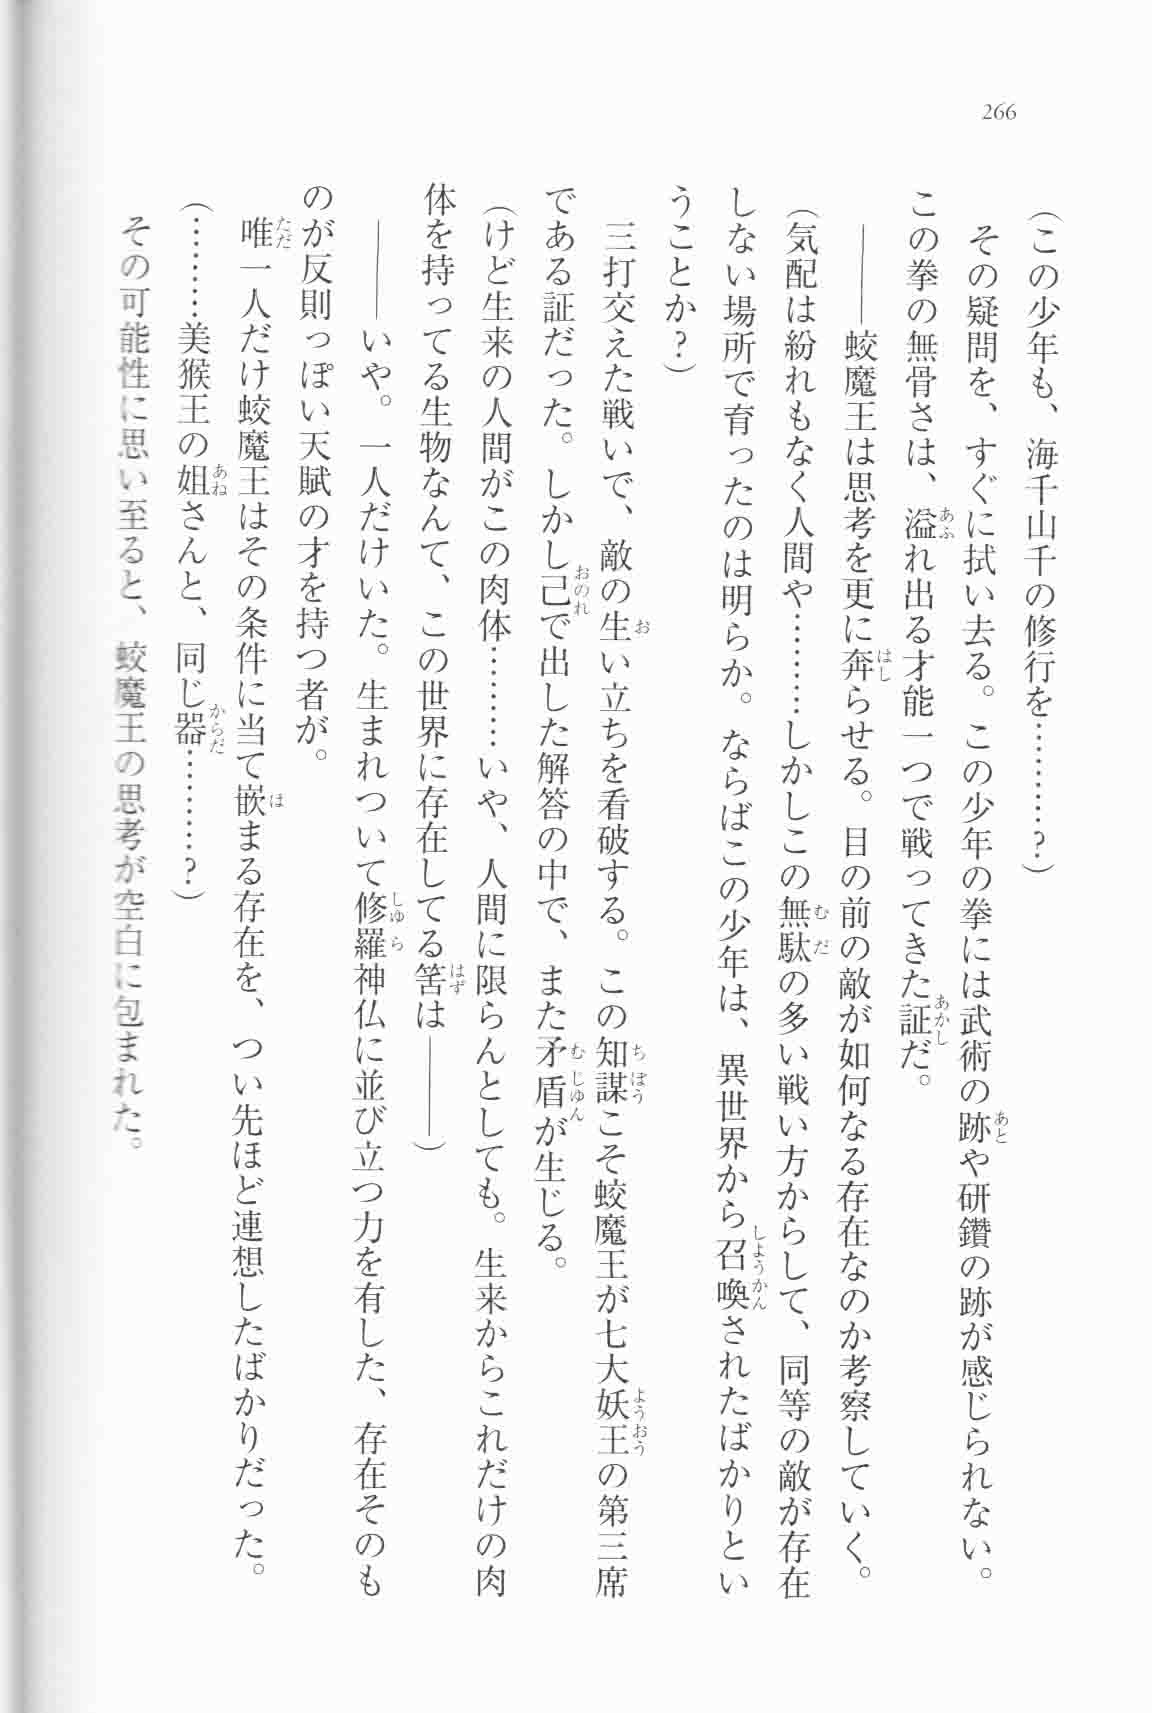 266
(この少年も、海千山千の修行を…………?)
その疑問を、すぐに拭い去る。この少年の拳には武術の跡や研鑽の跡が感じられない。
この拳の無骨さは、溢れ出る才能一つで戦ってきた証だ。
――蛟魔王は思考を更に奔らせる。目の前の敵が如何なる存在なのか考察していく。
(気配は紛れもなく人間や…………しかしこの無駄の多い戦い方からして、同等の敵が存在
しない場所で育ったのは明らか。ならばこの少年は、異世界から召喚されたばかりとい
うことか?)
三打交えた戦いで、敵の生い立ちを看破する。この知謀こそ蛟魔王が七大妖王の第三席
である証だった。しかし己で出した解答の中で、また矛盾が生じる。
(けど生来の人間がこの肉体…………いや、人間に限らんとしても。生来からこれだけの肉
体を持ってる生物なんて、この世界に存在してる筈は――)
――いや。一人だけいた。生まれついて修羅神仏に並び立つ力を有した、存在そのも
のが反則っぽい天賦の才を持つ者が。
唯一人だけ蛟魔王はその条件に当て嵌まる存在を、つい先ほど連想したばかりだった。
(…………美猴王の姐さんと、同じ器…………?)
その可能性に思い至ると、蛟魔王の思考が空白に包まれた。